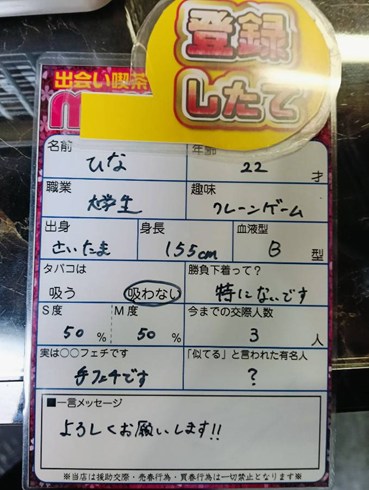 登録
したて
出会い喫茶
名前
年齢
ひな
22 才
職業
趣味
大学生
クレーンゲーム
出身
身長
血液型
さいたま
155cm
B 型
タバコは
勝負下着って?
吸う 吸わない
特にないです
S度
M度
今までの交際人数
50 %
50 %
3 人
実は○○フェチです
「似てる」と言われた有名人
手フェチです
?
■一言メッセージ
よろしくお願いします!!
※当店は援助交際・売春行為・買春行為は一切禁止となります※